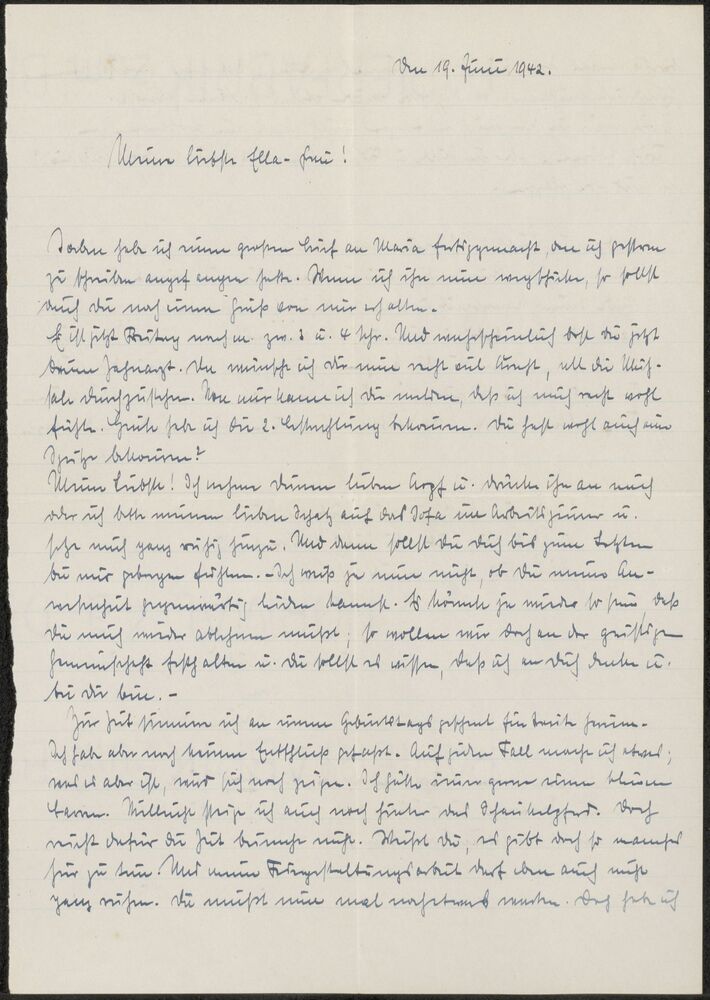 Den 19. Juni 1942.
Meine liebste Ella-Frau!
Soeben habe ich einen großen Brief an Maria fertiggemacht, den ich gestern
zu schreiben angefangen hatte. Wenn ich ihn nun wegschicke, so sollst
auch du noch einen Gruß von mir erhalten.
Es ist jetzt Freitag nachm. zw. 3 u. 4 Uhr. Und wahrscheinlich bist du jetzt
beim Zahnarzt. Da wünsche ich dir nun recht viel Kraft, all die Müh-
sale durchzustehen. Von mir kann ich dir melden, daß ich mich recht wohl
fühle. Heute habe ich die 2. Bestrahlung bekommen. Du hast wohl auch eine
Spritze bekommen?
Meine Liebste! Ich nehme deinen lieben Kopf u. drücke ihn an mich
oder ich bette meinen lieben Schatz auf das Sofa im Arbeitszimmer u.
setze mich ganz ruhig hinzu. Und dann sollst du dich bis zum Letzten
bei mir geborgen fühlen. - Ich weiß ja nun nicht, ob du meine An-
wesenheit gegenwärtig leiden kannst. Es könnte ja wieder so sein, daß
du mich wieder ablehnen mußt; so wollen wir doch an der geistigen
Gemeinschaft festhalten u. du sollst es wissen, daß ich an dich denke u.
bei dir bin. -
Zur Zeit sinne ich an einem Geburtstagsgeschenk für herum.
Ich habe aber noch keinen Entschluß gefaßt. Auf jeden Fall mache ich etwas;
was es aber ist, wird sich noch zeigen. Ich hätte immer gerne einen kleinen
Vielleicht steige ich auch noch hinter das Schaukelpferd. Doch
reicht dafür die Zeit beinahe nicht. Weißt du, es gibt doch so manches
hier zu tun. Und meine Freigestaltungsarbeit darf eben auch nicht
ganz ruhen. Du mußt nun mal noch etwas warten. Doch habe ich